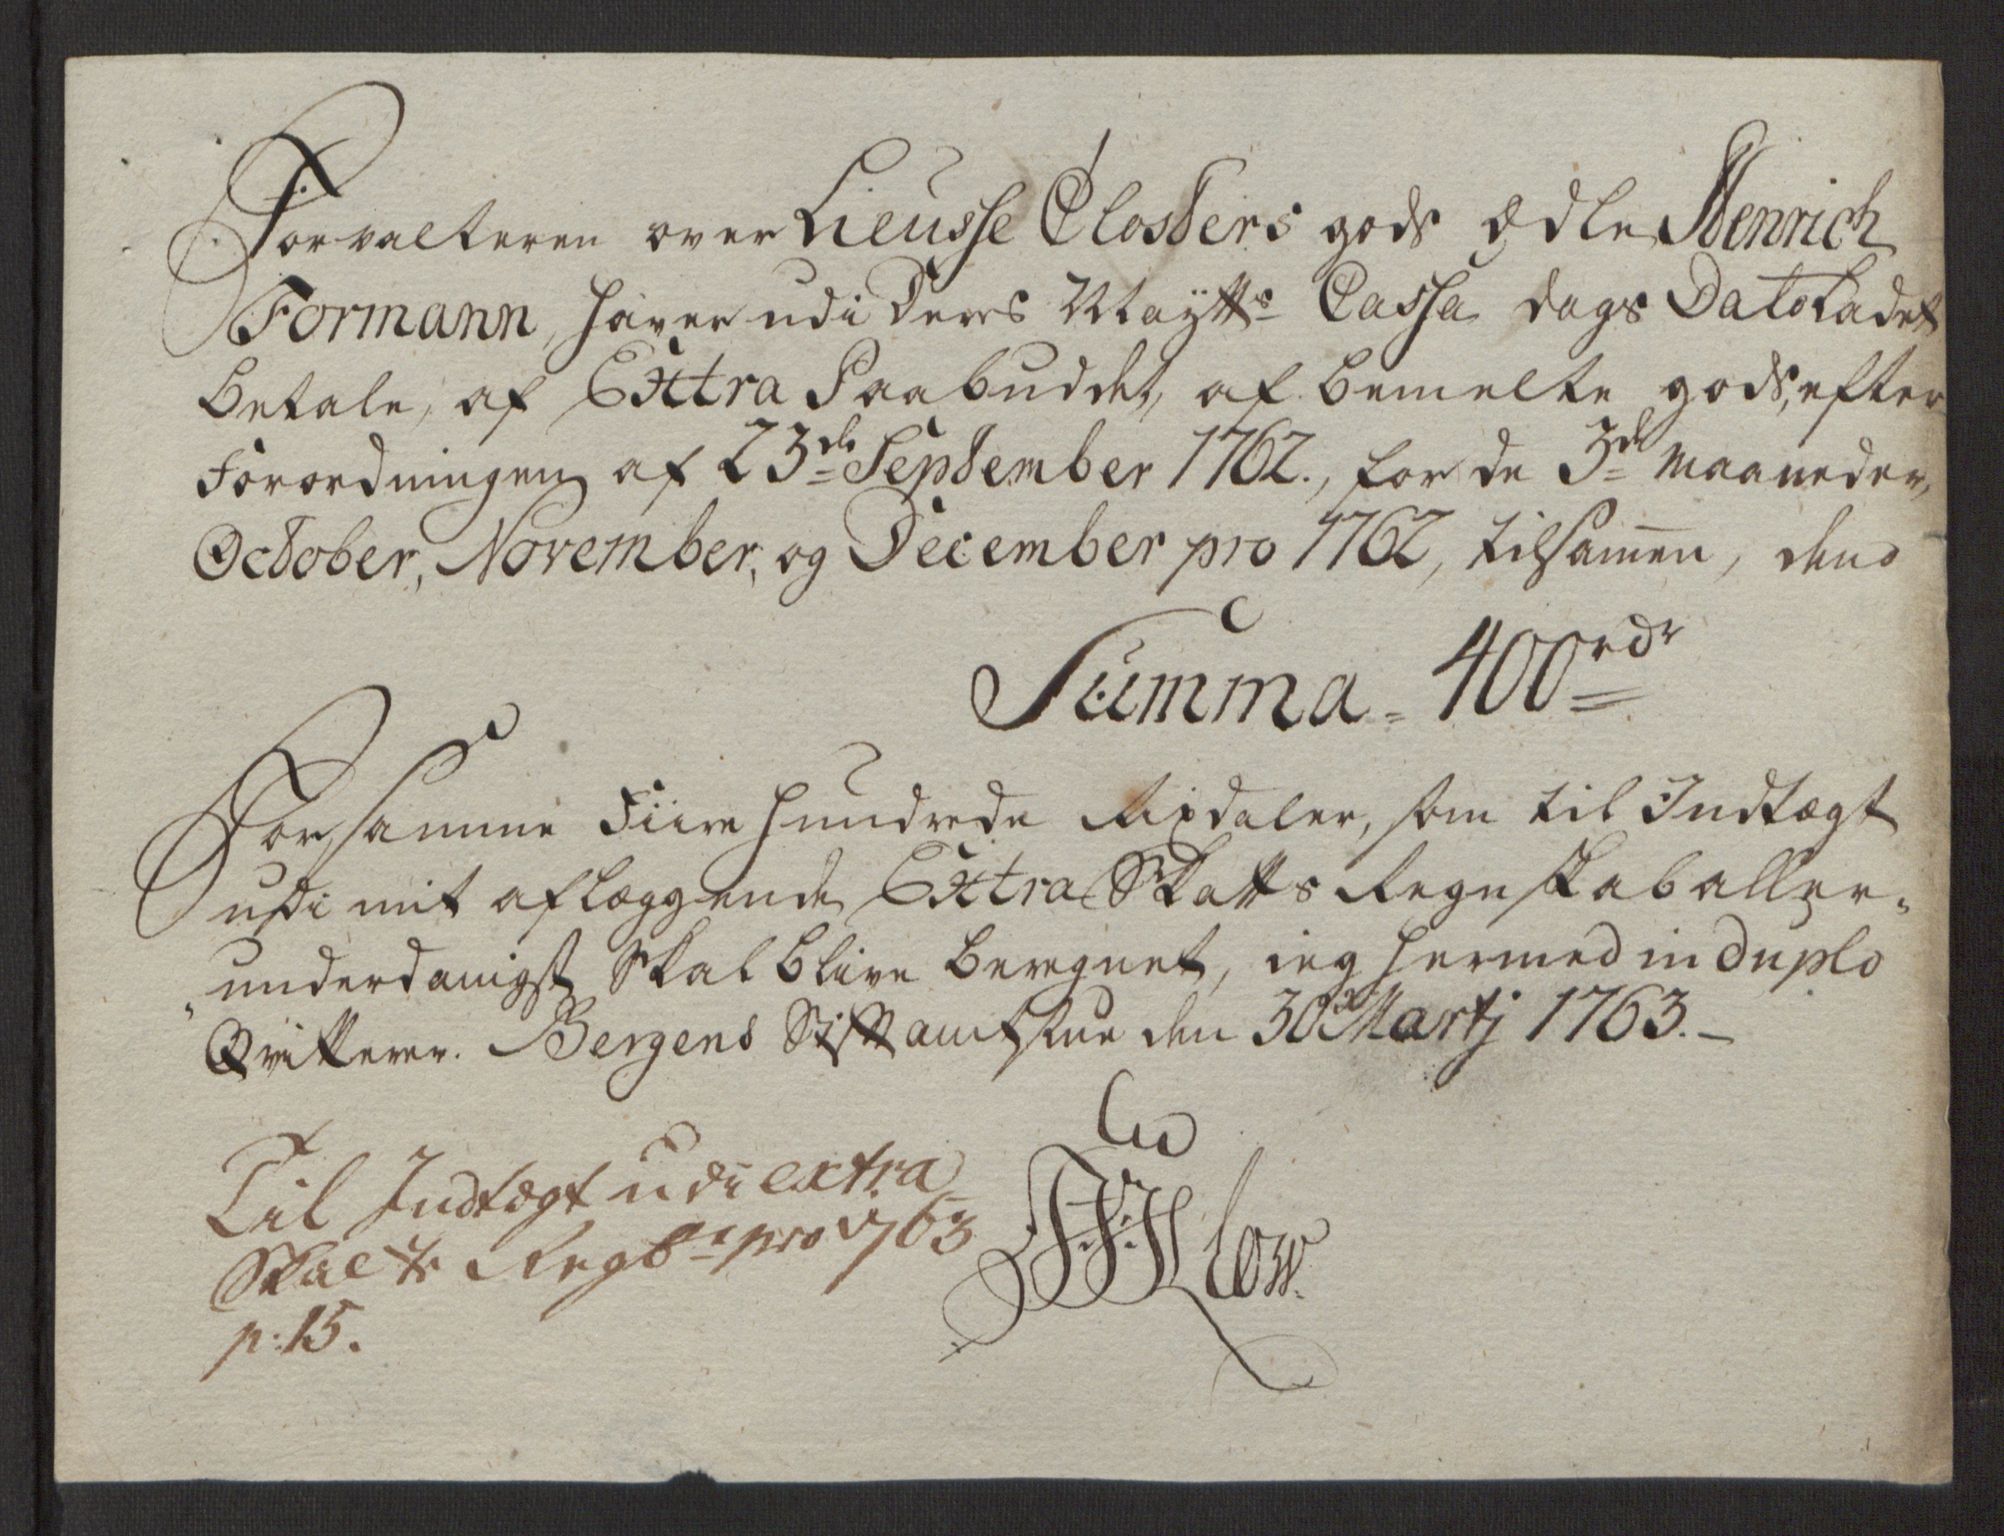 Forvalteren over Lieusse Closters gods Ædle Henrich
Formann, haver udi Deres Maytts Cassa dags Dato ladet
betale, af Extra Paabuddet, af bemelte gods, efter
Forordningen af 23de September 1762., for de 3de Maaneder,
October, November, og December pro 1762, tilsamen, dend
Summa = 400 rdr
For samme Fiire hundrede Rixdaler, som til Indtægt
udi mit aflæggende Extra Skatts Regnskab aller-
underdanigst skal blive beregnet, ieg hermed in duplo
Qvitterer. Bergens Stiftamtstue den 30 Martj 1763.
Til Indtægt udi extra
Skatts Regsb pro 1763
p: 15.